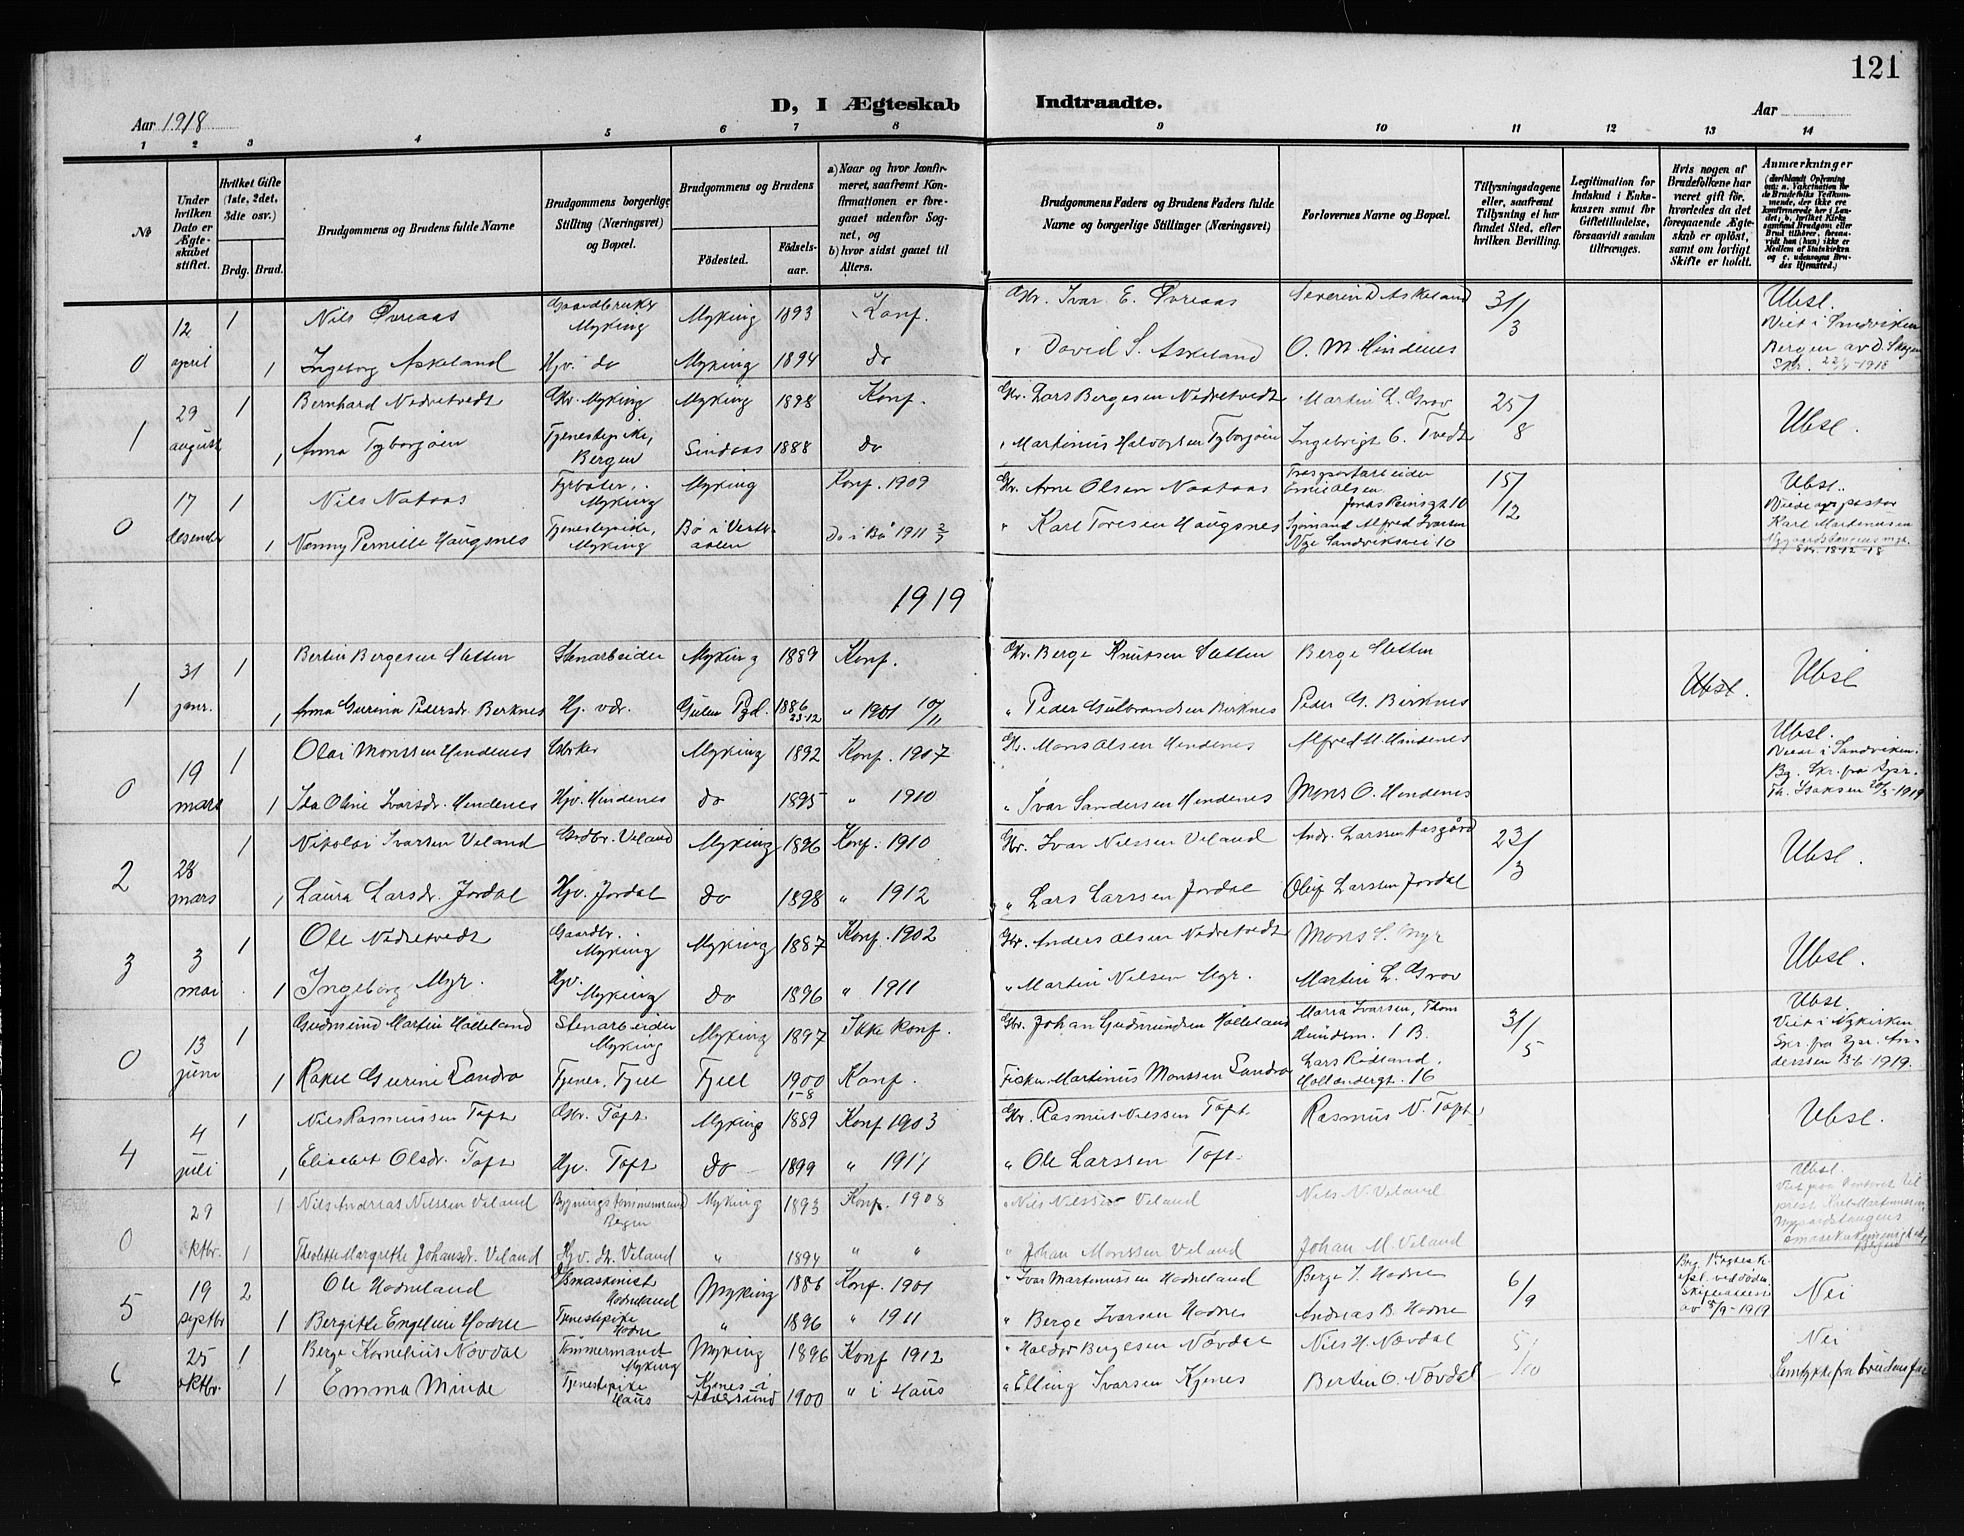 121
D, I Ægteskab Indtraadte.
Aar 1918
Aar
1 2 3 4 5 6 7 8 9 10 11 12 13 14
No
Under hvilken Dato er Ægteskabet stiftet.
Hvilket Gifte (1ste, 2det, 3die osv.)
Brdg. Brud.
Brudgommens og Brudens fulde Navne
Brudgommens borgerlige Stilling (Næringsvei) og Bopæl.
Brudgommens og Brudens
Födested. Födselsaar.
a) Naar og hvor konfirmeret, saafremt Konfirmationen er foregaaet udenfor Sognet, og
b) hvor sidst gaaet til Alters.
Brudgommens Faders og Brudens Faders fulde Navne og borgerlige Stillinger (Næringsvei)
Forlovernes Navne og Bopæl.
Tillysningsdagene eller, saafremt Tillysning ei har fundet Sted, efter hvilken Bevilling.
Legitimation for Indskud i Enkekassen samt for Giftetilladelse, forsaavidt saadan tiltrænges.
Hvis nogen af Brudefolkene har været gift før, hvorledes da det foregaaende Ægteskab er oplöst, samt om lovligt Skifte er holdt.
Anmærkninger
0 12 april 1 Nils Øvreaas Gaardbruker Myking Myking 1893 Konf. Gbr. Ivar E. Øvreaas Severin D. Askeland 31/3 Ubsl. Viet i Sandviken Bergen av
1 Ingeborg Askeland Hjv. do Myking 1894 do " David S. Askeland O. M. Hindenes
1 29 august 1 Bernhard Nedretvedt Gbr. Myking Myking 1898 Konf. Gbr. Lars Bergesen Nedretvedt Martin L. Grov 25/8 Ubsl.
1 Anna Tyborgöien Tjenestepike, Bergen Lindaas 1888 do " Martinus Halvorsen Ingebrigt Tvedt
0 17 desember 1 Nils Nataas Fyrböter, Myking Myking Konf. 1909 Gbr. Arne Olsen Naataas 15/12 Ubsl.
1 Nanny Pernille Haugsnes Tjenestepike, Myking Bö i Vesteraalen Do i Bö 1911 " Karl Toresen Haugsnes Alfred Ivarsen Sandviksvei 10
1919
1 31 janr. 1 Bertin Bergesen Sletten Stenarbeider Myking 1889 Konf. Gbr. Berge Knutsen Sletten Berge Sletten Ubsl. Ubsl
1 Anna Gurina Pedersdr. Berknes Hj. vær. Gulen Pgd. 1886 23-12 " 1901 10/11 " Peder Gulbrandsen Berknes Peder G. Birknes
0 19 mars 1 Olai Monssen Hindenes Myking 1892 Konf. 1907 Gbr. Mons Olsen Hindenes Alfred M. Hindenes Ubsl. Viede i Sandviken
1 Ida Oline Ivarsdr. Hindenes Hjv. Hindenes do 1895 " 1910 " Ivar Sandersen Hendenes Mons O. Hindenes
2 28 mars 1 Nikolai Ivarsen Veland Grdbr. Veland Myking 1896 Konf. 1910 Gbr. Ivar Nilssen Veland Andr. Larssen Aasgård 23/3 Ubsl.
1 Laura Larsdr. Jordal Hjv. Jordal do 1898 " 1912 " Lars Larssen Jordal Oluf Larssen Jordal
3 3 mai 1 Ole Nedretvedt Gaardbr. Myking Myking 1887 Konf. 1902 Gbr. Anders Olsen Nedretvedt Mons S. Myr Ubsl.
1 Ingeborg Myr. Hjv. Myking do 1896 " 1911 " Martin Nilsen Myr. Martin L. Grov
0 13 juni 1 Gudmund Martin Hölleland Stenarbeider Myking Myking 1897 Ikke konf. Gbr. Johan Gudmundsen Hölleland Maria Ivarsen, 31/5 Ubsl. Viet i Nykirken
1 Rakel Gurine Landro Tjener. Fjell Fjell 1900 1-8 Konf. Fisker Martinus Monssen Landro Lars Hollendergt. 16
4 4 juli 1 Nils Rasmussen Toft Gbr. Toft. Myking 1889 Konf 1903 Gbr. Rasmus Nilssen Toft. Rasmus N. Toft Ubsl.
1 Elisabet Olsdr. Toft Hjv. Toft do 1899 " " Ole Larssen Toft.
0 29 oktbr. 1 Nils Andreas Nilssen Veland Bygningstømmermand Bergen Myking 1893 Konf. 1908 " Nils Nilssen Veland Nils N. Veland Ubsl.
1 Margrethe Johansdr. Veland Hjv. Veland " 1894 " " " Johan Monssen Veland Johan M. Veland
5 19 septbr 2 Ole Hodneland Hodneland Myking 1886 Konf. 1901 " Ivar Martinussen Hodneland Berge I. Hodne 6/9 Nei
1 Bergitte Engeline Hodne Tjenestepike Hodne " 1896 " 1911 " Berge Ivarsen Hodne Andreas B. Hodne
6 25 oktbr. 1 Berge Kornelius Növdal Tömmermand Myking Myking 1896 Konf 1912 " Haldor Bergesen Növdal Nils H. Növdal 5/10 Nei
1 Emma Minde Tjenestepike Haus Kjenes i 1900 " i Haus " Elling Ivarsen Kjenes Bertin O. Növdal Samtykke fra brudens far